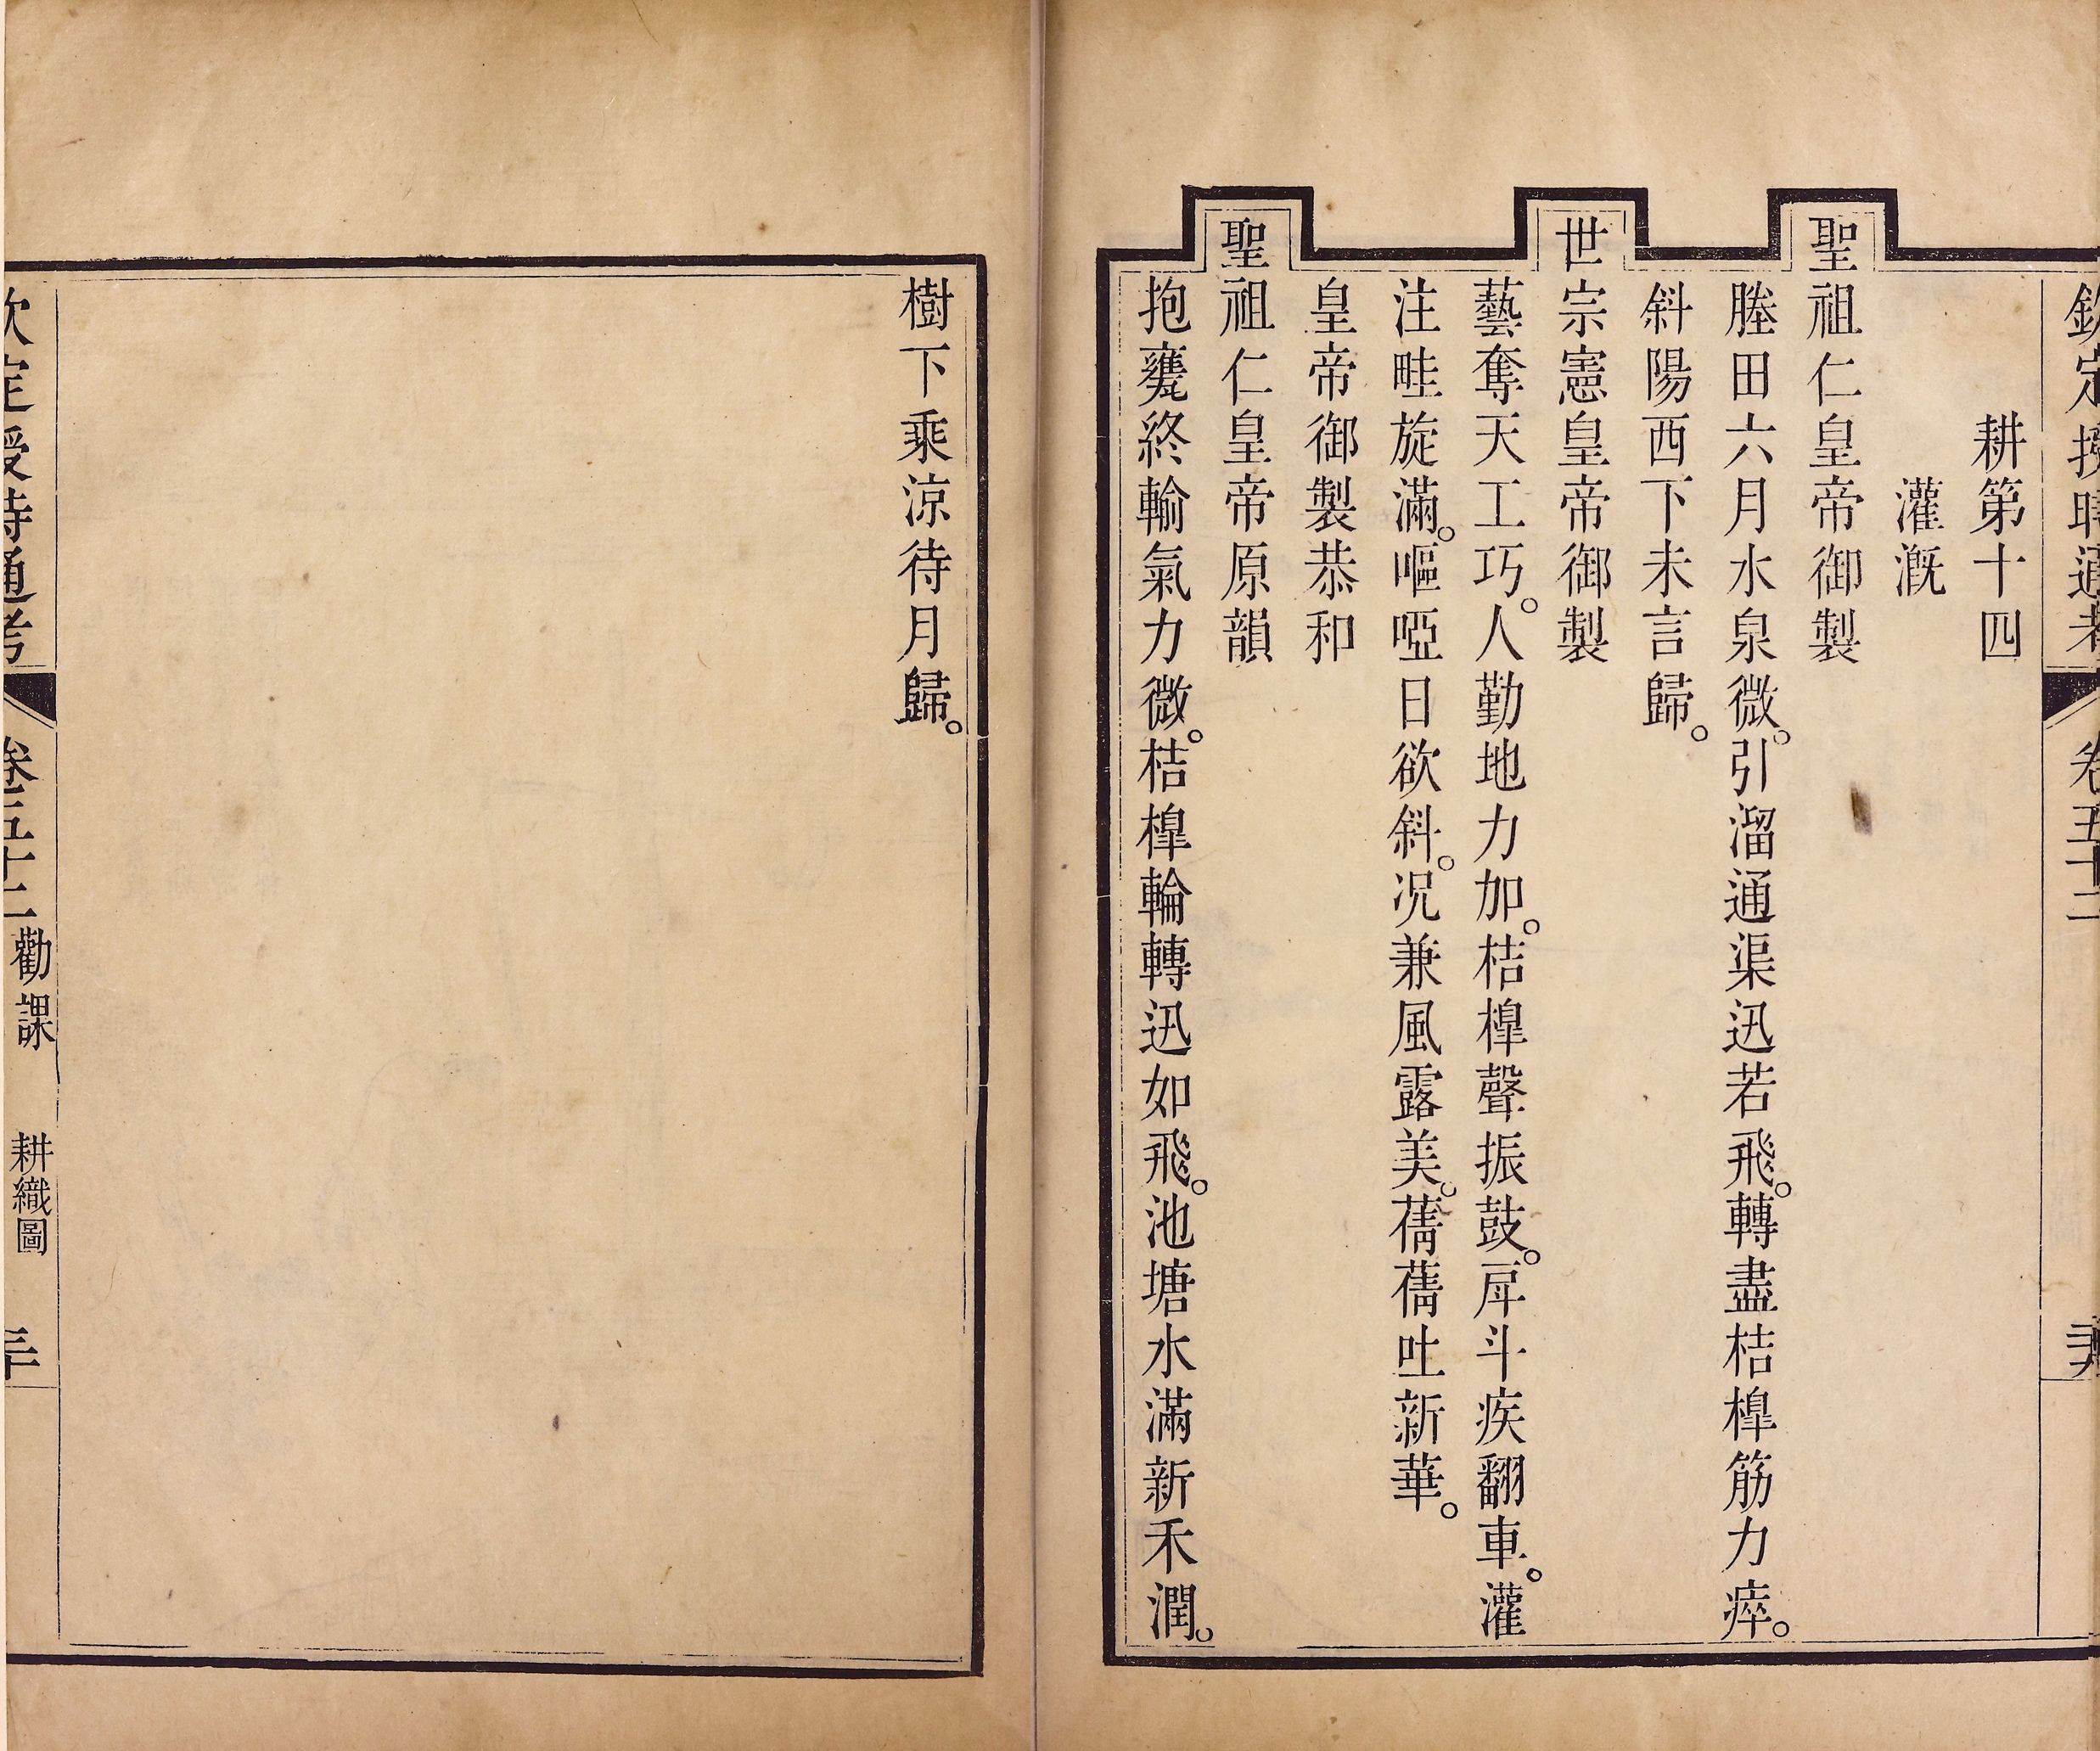 欽定授時通考
卷五十二
耕第十四
灌漑
聖祖仁皇帝御製
塍田六月水泉微。引溜通渠迅若飛。轉盡桔槹筋力瘁。
斜陽西下未言歸。
世宗憲皇帝御製
藝奪天工巧。人勤地力加。桔槹聲振鼓。戽斗疾翻車。灌
注畦旋滿。嘔啞日欲斜。况兼風露美。蒨蒨吐新華。
皇帝御製恭和
聖祖仁皇帝原韻
抱甕終輸氣力微。桔槹輪轉迅如飛。池塘水滿新禾潤。
樹下乘涼待月歸。
欽定授時通考
卷五十二 勸課 耕織圖